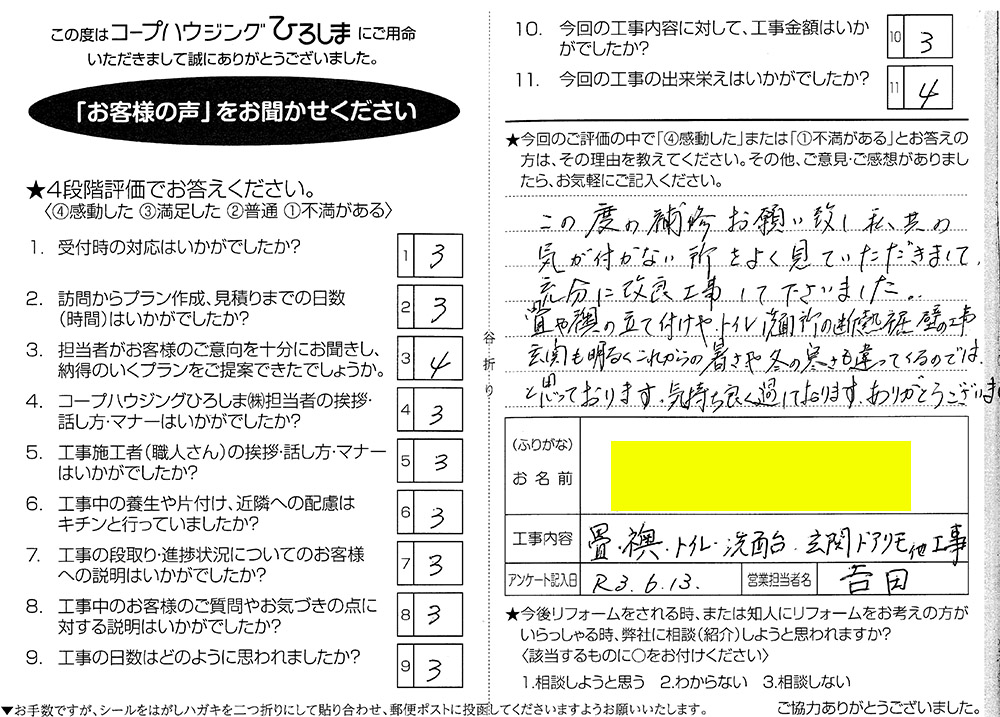 この度はコープハウジングひろしまにご用命
いただきまして誠にありがとうございました。
「お客様の声」をお聞かせください
★4段階評価でお答えください。
〈④感動した ③満足した ②普通 ①不満がある〉
1. 受付時の対応はいかがでしたか?
1 3
2. 訪問からプラン作成、見積りまでの日数
(時間)はいかがでしたか?
2 3
3. 担当者がお客様のご意向を十分にお聞きし、
納得のいくプランをご提案できたでしょうか。
3 4
4. コープハウジングひろしま㈱担当者の挨拶・
話し方・マナーはいかがでしたか?
4 3
5. 工事施工者(職人さん)の挨拶・話し方・マナー
はいかがでしたか?
5 3
6. 工事中の養生や片付け、近隣への配慮は
キチンと行っていましたか?
6 3
7. 工事の段取り・進捗状況についてのお客様
への説明はいかがでしたか?
7 3
8. 工事中のお客様のご質問やお気づきの点に
対する説明はいかがでしたか?
8 3
9. 工事の日数はどのように思われましたか?
9 3
▼お手数ですが、シールをはがしハガキを二つ折りにして貼り合わせ、郵便ポストに投函してくださいますようお願いいたします。
谷折り
10. 今回の工事内容に対して、工事金額はいか
がでしたか?
10 3
11. 今回の工事の出来栄えはいかがでしたか?
11 4
★今回のご評価の中で「④感動した」または「①不満がある」とお答えの
方は、その理由を教えてください。その他、ご意見・ご感想がありまし
たら、お気軽にご記入ください。
この度の補修お願い致し私共の
気が付かない所をよく見ていただきまして、
充分に改良工事して下さいました。
畳や襖の立て付けや、トイレ、洗面所の断熱、壁の工事
玄関も明るくこれからの暑さや冬の寒さも違ってくるのでは、
と思っております。気持ち良く過しております。ありがとうございま
(ふりがな)
お名前
工事内容 畳・襖・トイレ・洗面台・玄関ドアリモ他工事
アンケート記入日 R3.6.13. 営業担当者名 吉田
★今後リフォームをされる時、または知人にリフォームをお考えの方が
いらっしゃる時、弊社に相談(紹介)しようと思われますか?
〈該当するものに○をお付けください〉
1.相談しようと思う 2.わからない 3.相談しない
ご協力ありがとうございました。